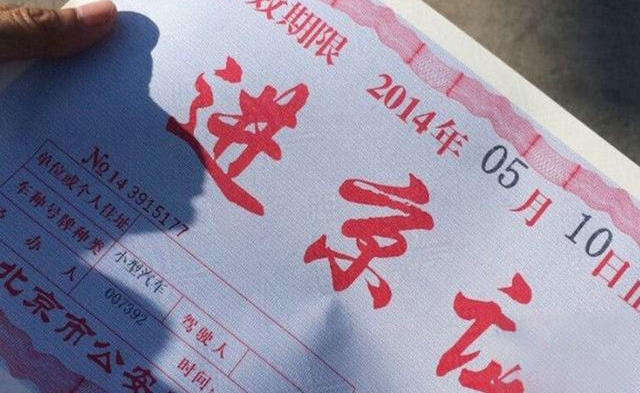 效期限 2014年 05月 10日
进京证
No 14 3915177
单位或个人住址
车种号牌种类 小型汽车
办人 007392 驾驶人
时间
北京市公安